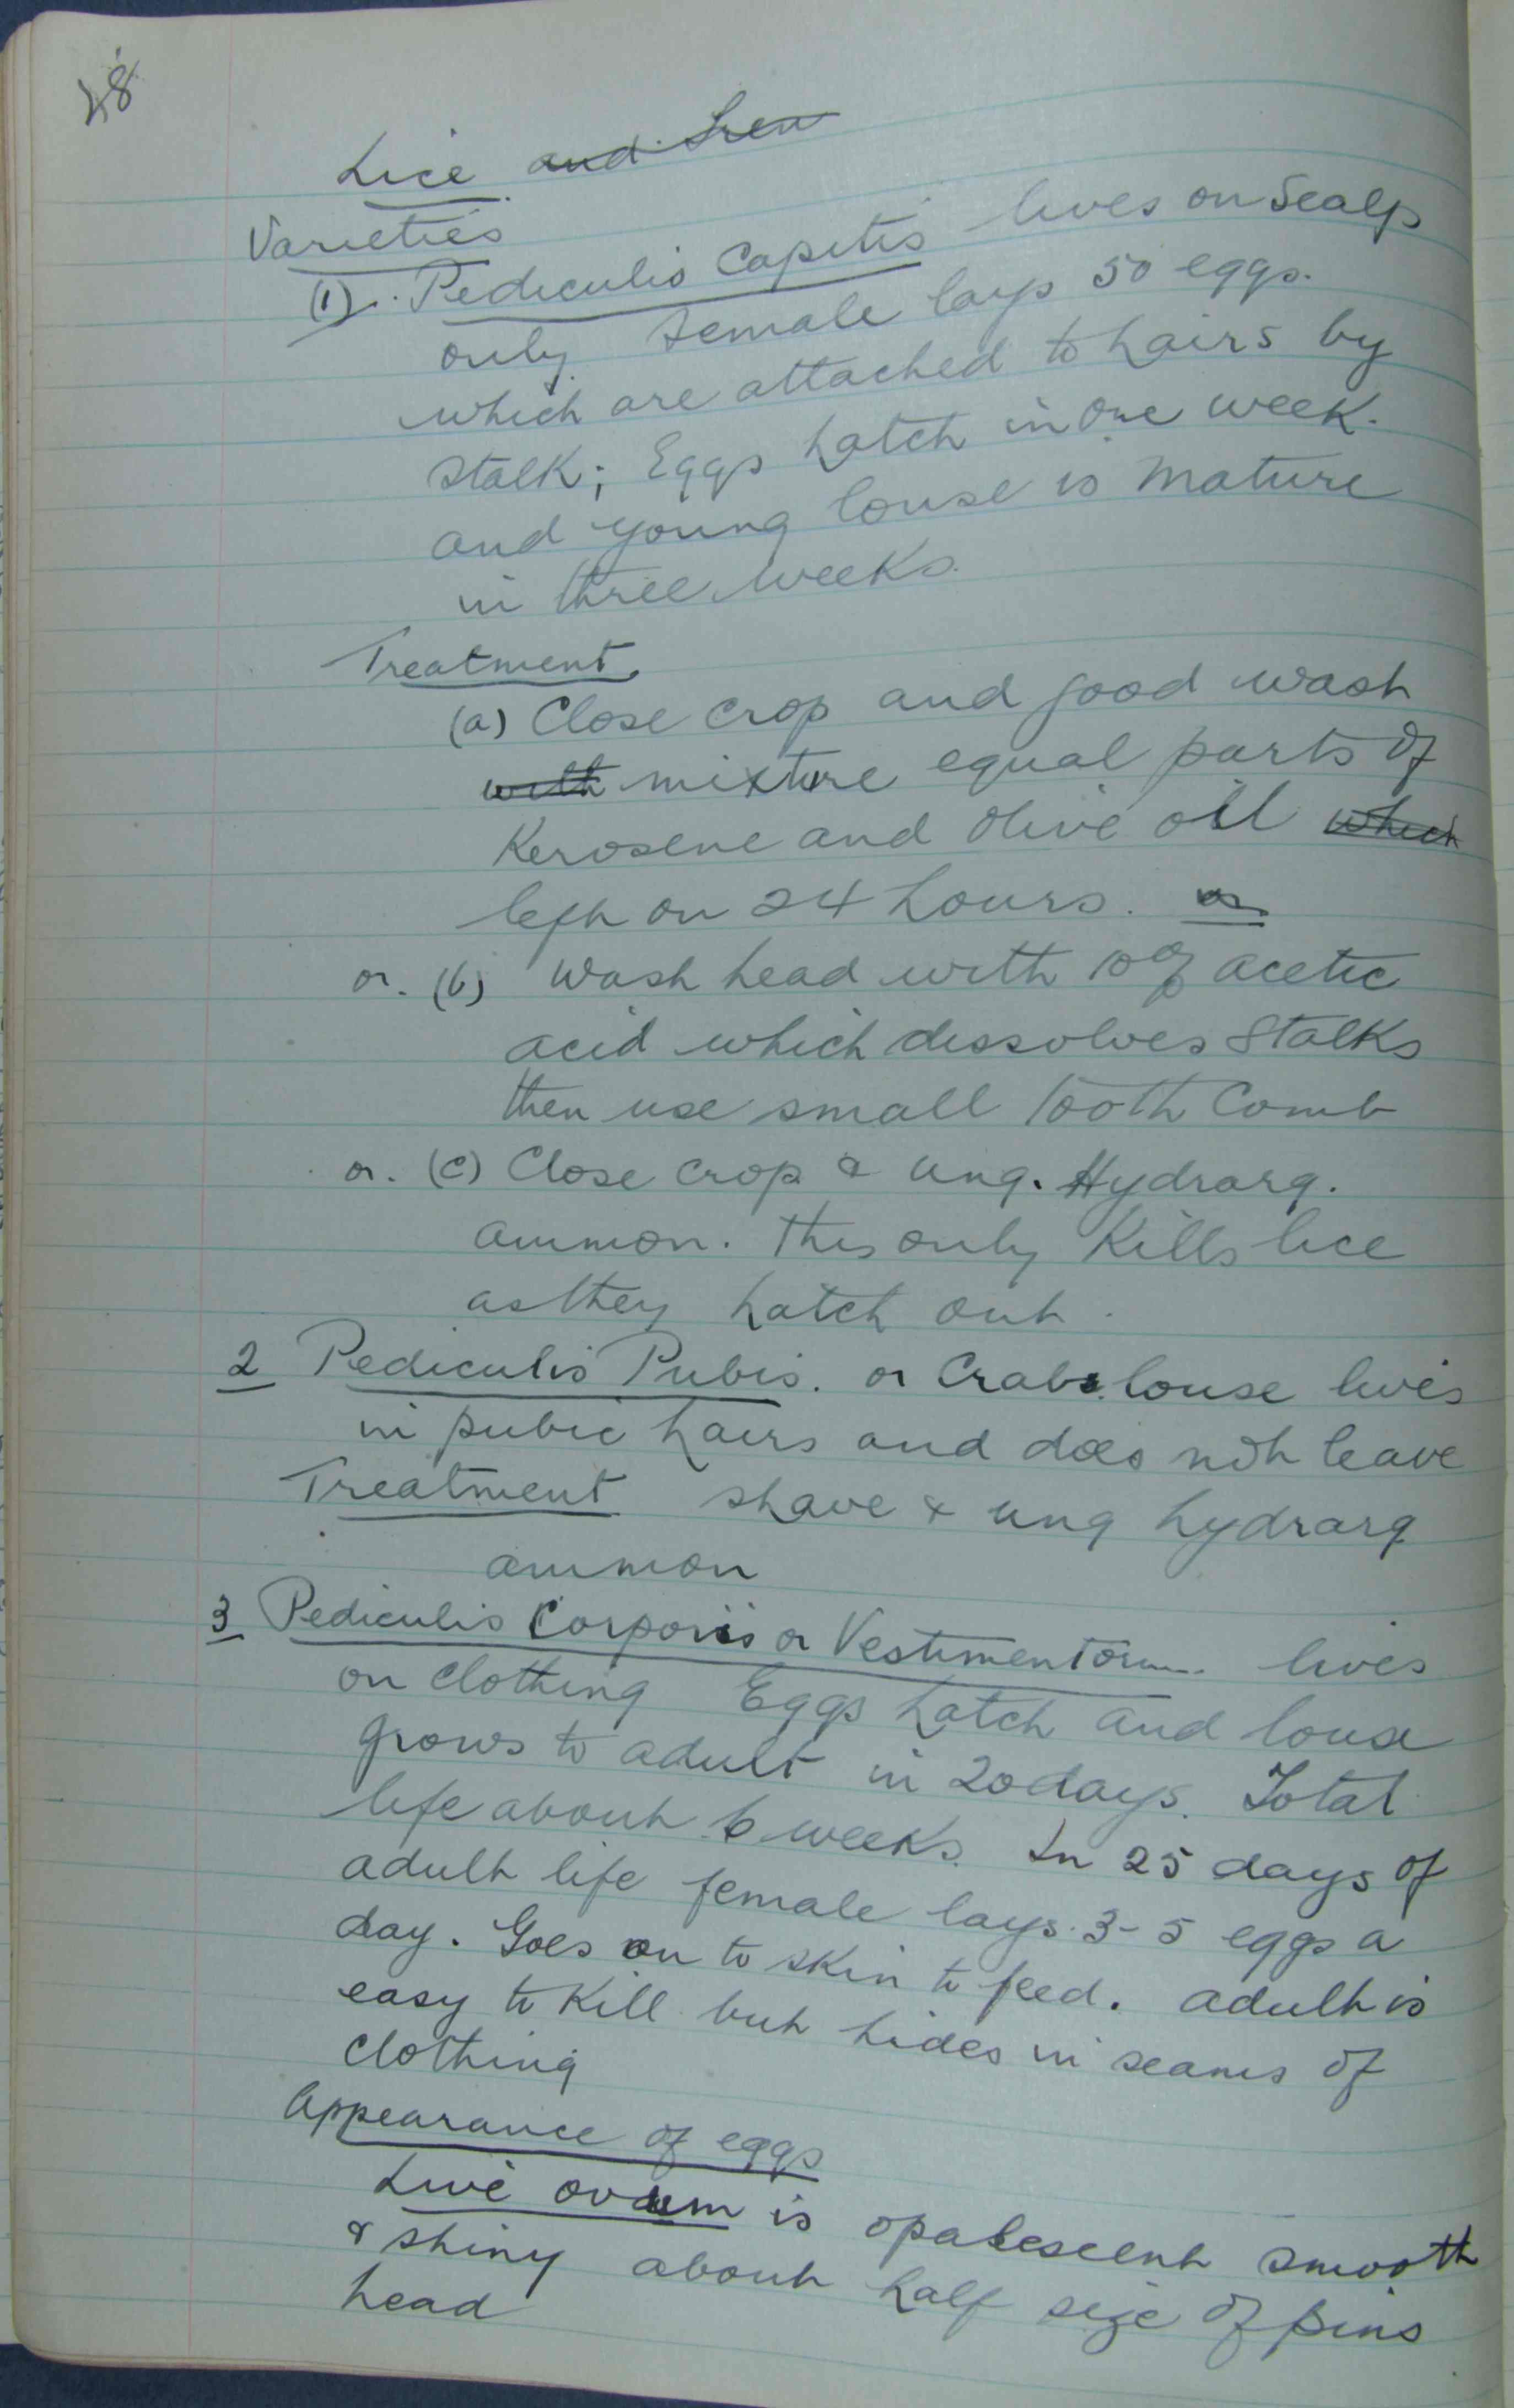 48
Lice and
Varieties
(1). Pediculis Capitis lives on Scalp
only. Female lays 50 eggs.
which are attached to hairs by
stalk; Eggs hatch in one week.
and young louse is mature
in three weeks.
Treatment
(a) Close crop and good wash
with mixture equal parts of
Kerosene and Olive oil which
left on 24 hours. or
or. (b) Wash head with 10% acetic
acid which dissolves stalks
then use small tooth comb
or. (c) Close crop & ung. Hydrarg.
ammon. This only Kills lice
as they hatch out.
2 Pediculis Pubis. or Crab louse lives
in pubic hairs and does not leave
Treatment shave & ung hydrarg
ammon
3 Pediculis Corporis or Vestimentorum. lives
on clothing Eggs hatch and louse
grows to adult in 20 days. Total
life about 6 weeks. In 25 days of
adult life female lays 3-5 eggs a
day. Goes on to skin to feed. Adult is
easy to Kill but hides in seams of
clothing
Appearance of eggs
Live ovum is opalescent smooth
& shiny about half size of pins
head